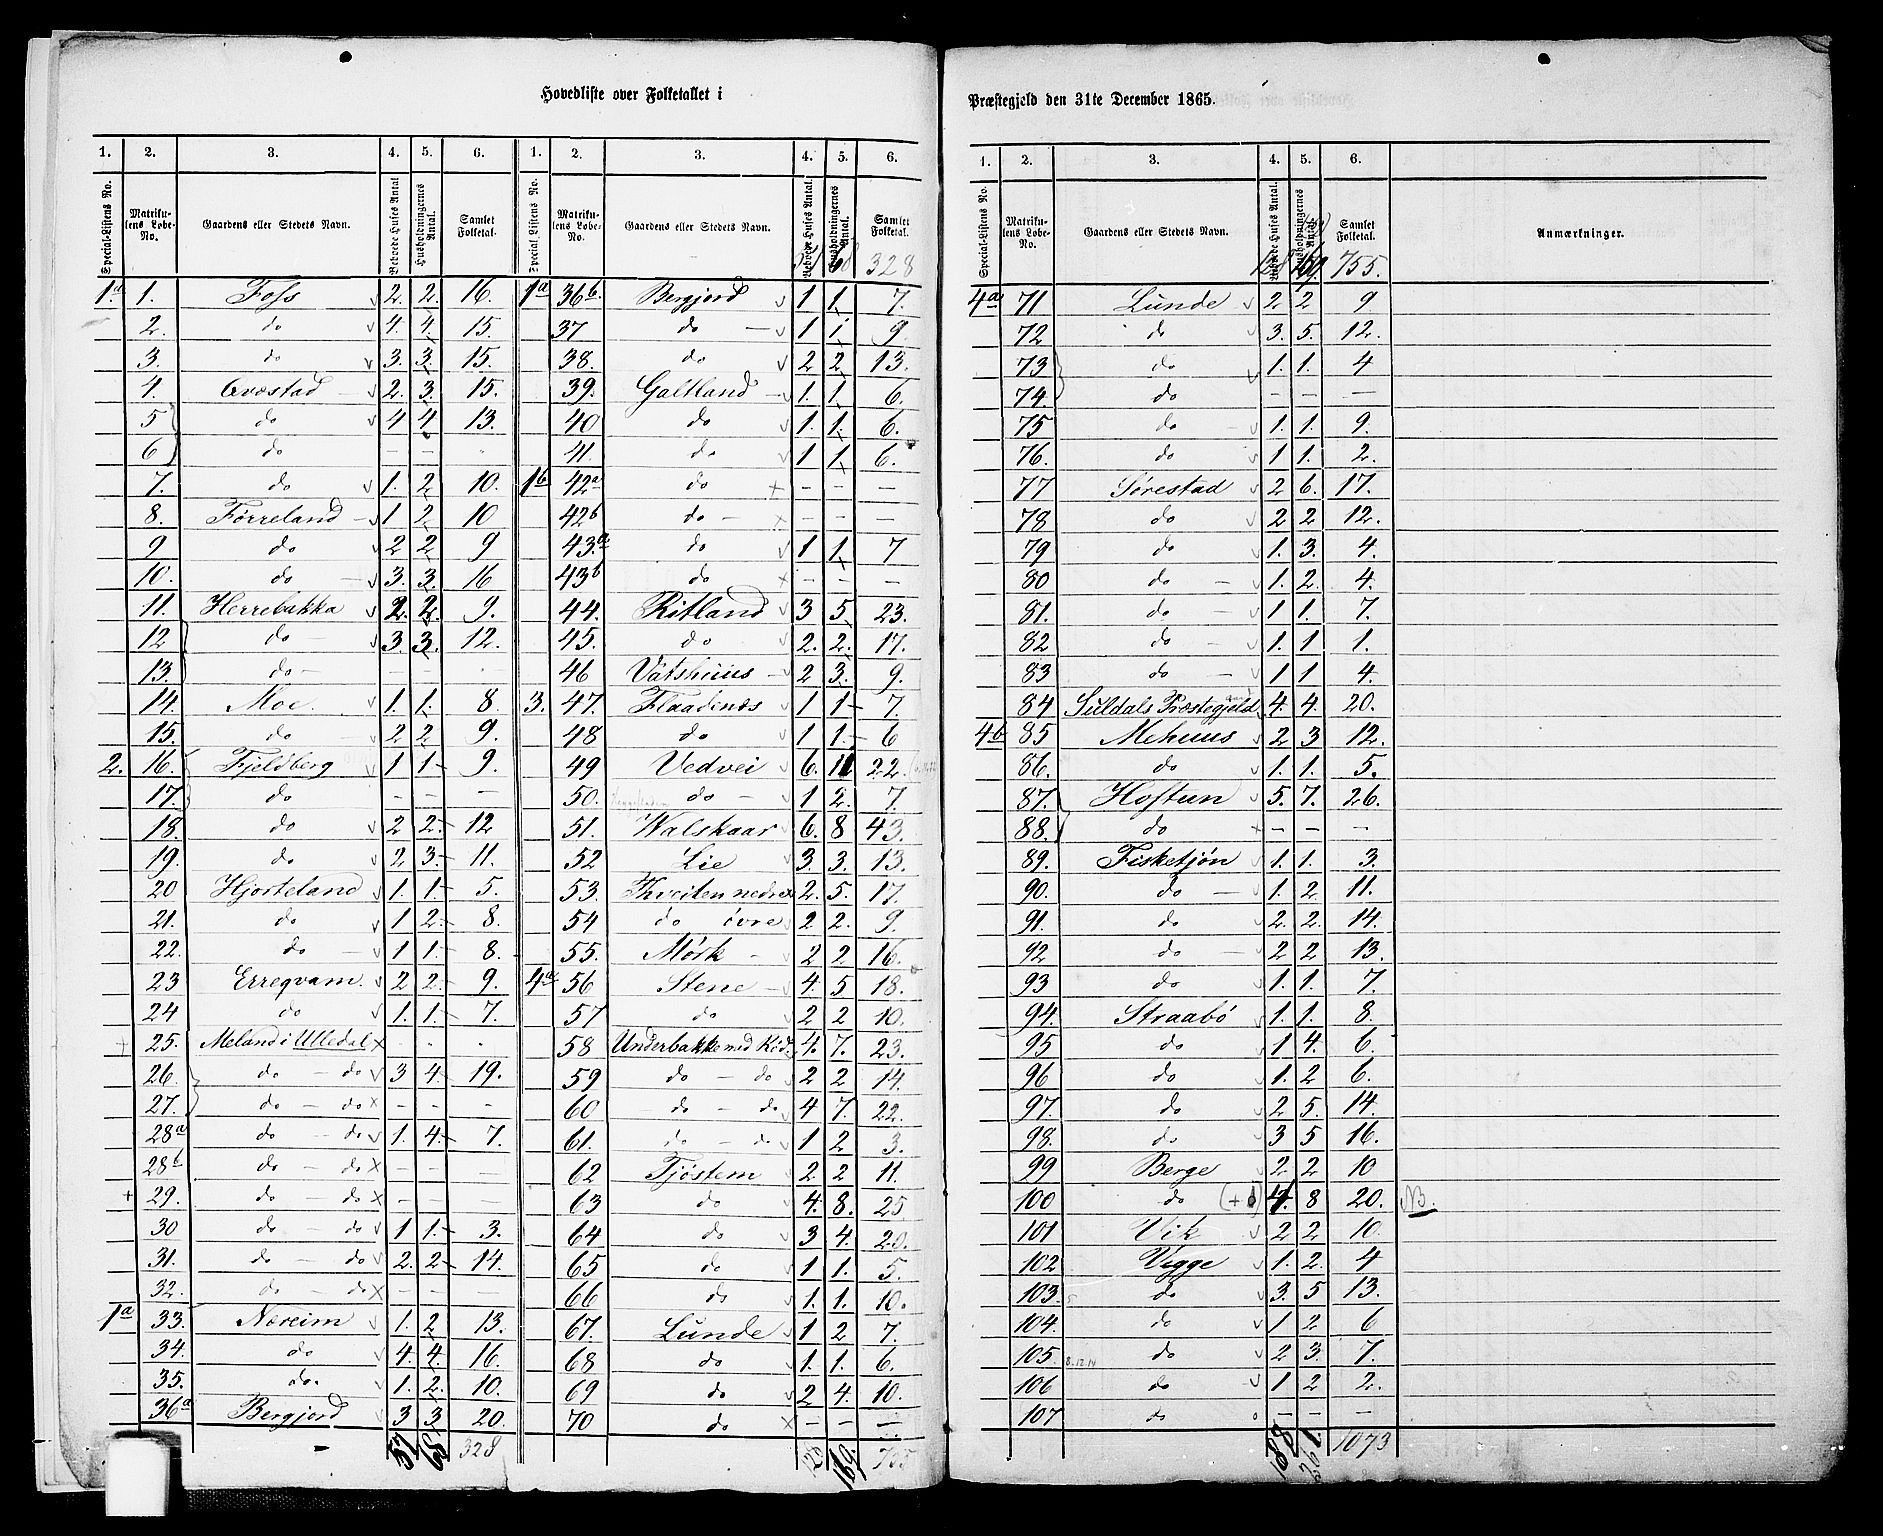 Hovedliste over Folketallet i
1. 2. 3. 4. 5. 6. 1. 2. 3. 4. 5. 6.
Special-Listens No. Matrikulens Løbe-No. Gaardens eller Stedets Navn. Beboede Huses Antal Husholdningernes Antal. Samlet Folketal. Special-Listens No. Matrikulens Løbe-No. Gaardens eller Stedets Navn. Beboede Huses Antal. Husholdningernes Antal. Samlet Folketal.
328
1.a 1. Foss v 2. 2. 16. 1a 36b. Bergjord v 1 1. 7.
2. do v 4. 4. 15. 37 do v 1 1. 9.
3. do v 3. 3. 15. 38. do v 2 2. 13.
4. Qvæstad 2. 3. 15. 39. Galtland 1. 1. 6.
5 do v 4 4 13. 40 do v 1. 1. 6.
6 do – – 41. do v 1 1. 6.
7. do v 1. 2 10. 1b 42a do x – – –
8. Førreland v 1 2. 10 42b do x – – –
9 do v 2 2 9 43.a do v 1 1. 7
10. do v 3. 3. 16 43b do x – – –
11. Herrebakka v 2. 2. 9. 44. Ritland v 3 5. 23.
12 do v 3. 3. 12. 45. do v 2. 2. 17.
13. do – – 46 Vatshuus 2 3. 9.
14. Moe. v 1. 1. 8. 3. 47. Flaadenæs v 1 1 7.
15. do v 2 2. 9. 48 do v 1 1. 6
2. 16. Fjeldberg v 1 1 9. 49 Vedvei v 6. 11 22.
17. do – – – 50. do v 1 2. 7.
18. do v 2 2. 12 51. Walskaar v 6. 8 43.
19. do v 2 3. 11. 52. Lie v 3. 3. 13.
20 Hjorteland v 1. 1. 5. 53. Thveiten nedre x 2. 5. 17.
21. do v 1 2. 8. 54 do øvre v 2 2. 9.
22. do v 1 1. 8. 55. Mørk 2 2 16.
23 Erregvam. v 2 2. 9. 4a 56 Stene v 4. 5 18.
24 do v 1. 1. 7. 57 do v 2 2 10.
25. Meland i Ulledal x 58 Underbakke med Kød. 4. 7. 23.
26. do – do v 3 4. 19. 59 do – do v 2 2 14.
27. do – do x – – – 60 do – do v 4 7. 22.
28a do – do v 1. 4. 7. 61. do – do v 1 2 3.
28b do – do x – – – 62 Tjøstem v 2. 2 11.
+ 29. do – do x – – – 63 do v 4. 8. 25
30 do – do v 1 1. 3. 64 do v 3 4. 20.
31. do – do v 2. 2 14. 65 do v 1 1. 5.
32. do – do x – – – 66 do v 1. 1. 10.
1a 33. Næreim v 1. 2 13. 67. Lunde v 1 2 7.
34. do v 4. 4. 16. 68 do v 1. 1. 6.
35. do. v 1. 2. 10. 69 do v 2 4. 10.
36a Bergjord v 3 3 20. 70 do x – – –
57 68 328 128 169.
Præstegjeld den 31te December 1865.
1. 2. 3. 4. 5. 6.
Special-Listens No. Matrikulens Løbe-No. Gaardens eller Stedets Navn. Beboede Huses Antal. Husholdningernes Antal. Samlet Folketal. Anmærkninger.
128 169 755.
4a 71 Lunde v 2 2 9
72 do v 3. 5. 12.
73 do v 1. 1. 4
74. do – – –
75 do v 1. 1. 9.
76. do v 1 1. 2.
77 Sørestad v 2 6. 17.
78 do v 2 2 12.
79 do v 1. 3. 4.
80 do v 1. 2. 4.
81. do v 1 1. 7.
82 do v 1. 1 1.
83 do v 1 1 4.
84 Suldals Præstegjeld 4. 4. 20.
4b 85 Mehuus v 2 3 12.
86. do v 1. 1. 5.
87. Hoftun v 5. 7. 26.
88. do x – – –
89. Fisketjøn v 1. 1. 3.
90. do v 1. 2 11.
91. do v 2. 2. 14.
92 do v 2 2 13.
93 do v 1. 1. 7.
94. Straabø v 1. 1. 8.
95 do v 1 4. 6.
96 do v 1. 2 6.
97. do v 2 5. 14.
98. do v 3 5 16.
99 Berge v 2 2 10
100 do (+1) 4. 8 20. NB.
101 Vik v 2 2 10.
102 Vigge v 1. 2. 4
103. do v 3. 5 13.
104. do v 1 2 6
105. 8.12.14 do v 2 3. 7.
106 do v 1 2 2.
107 do – – –
188 261. 1073